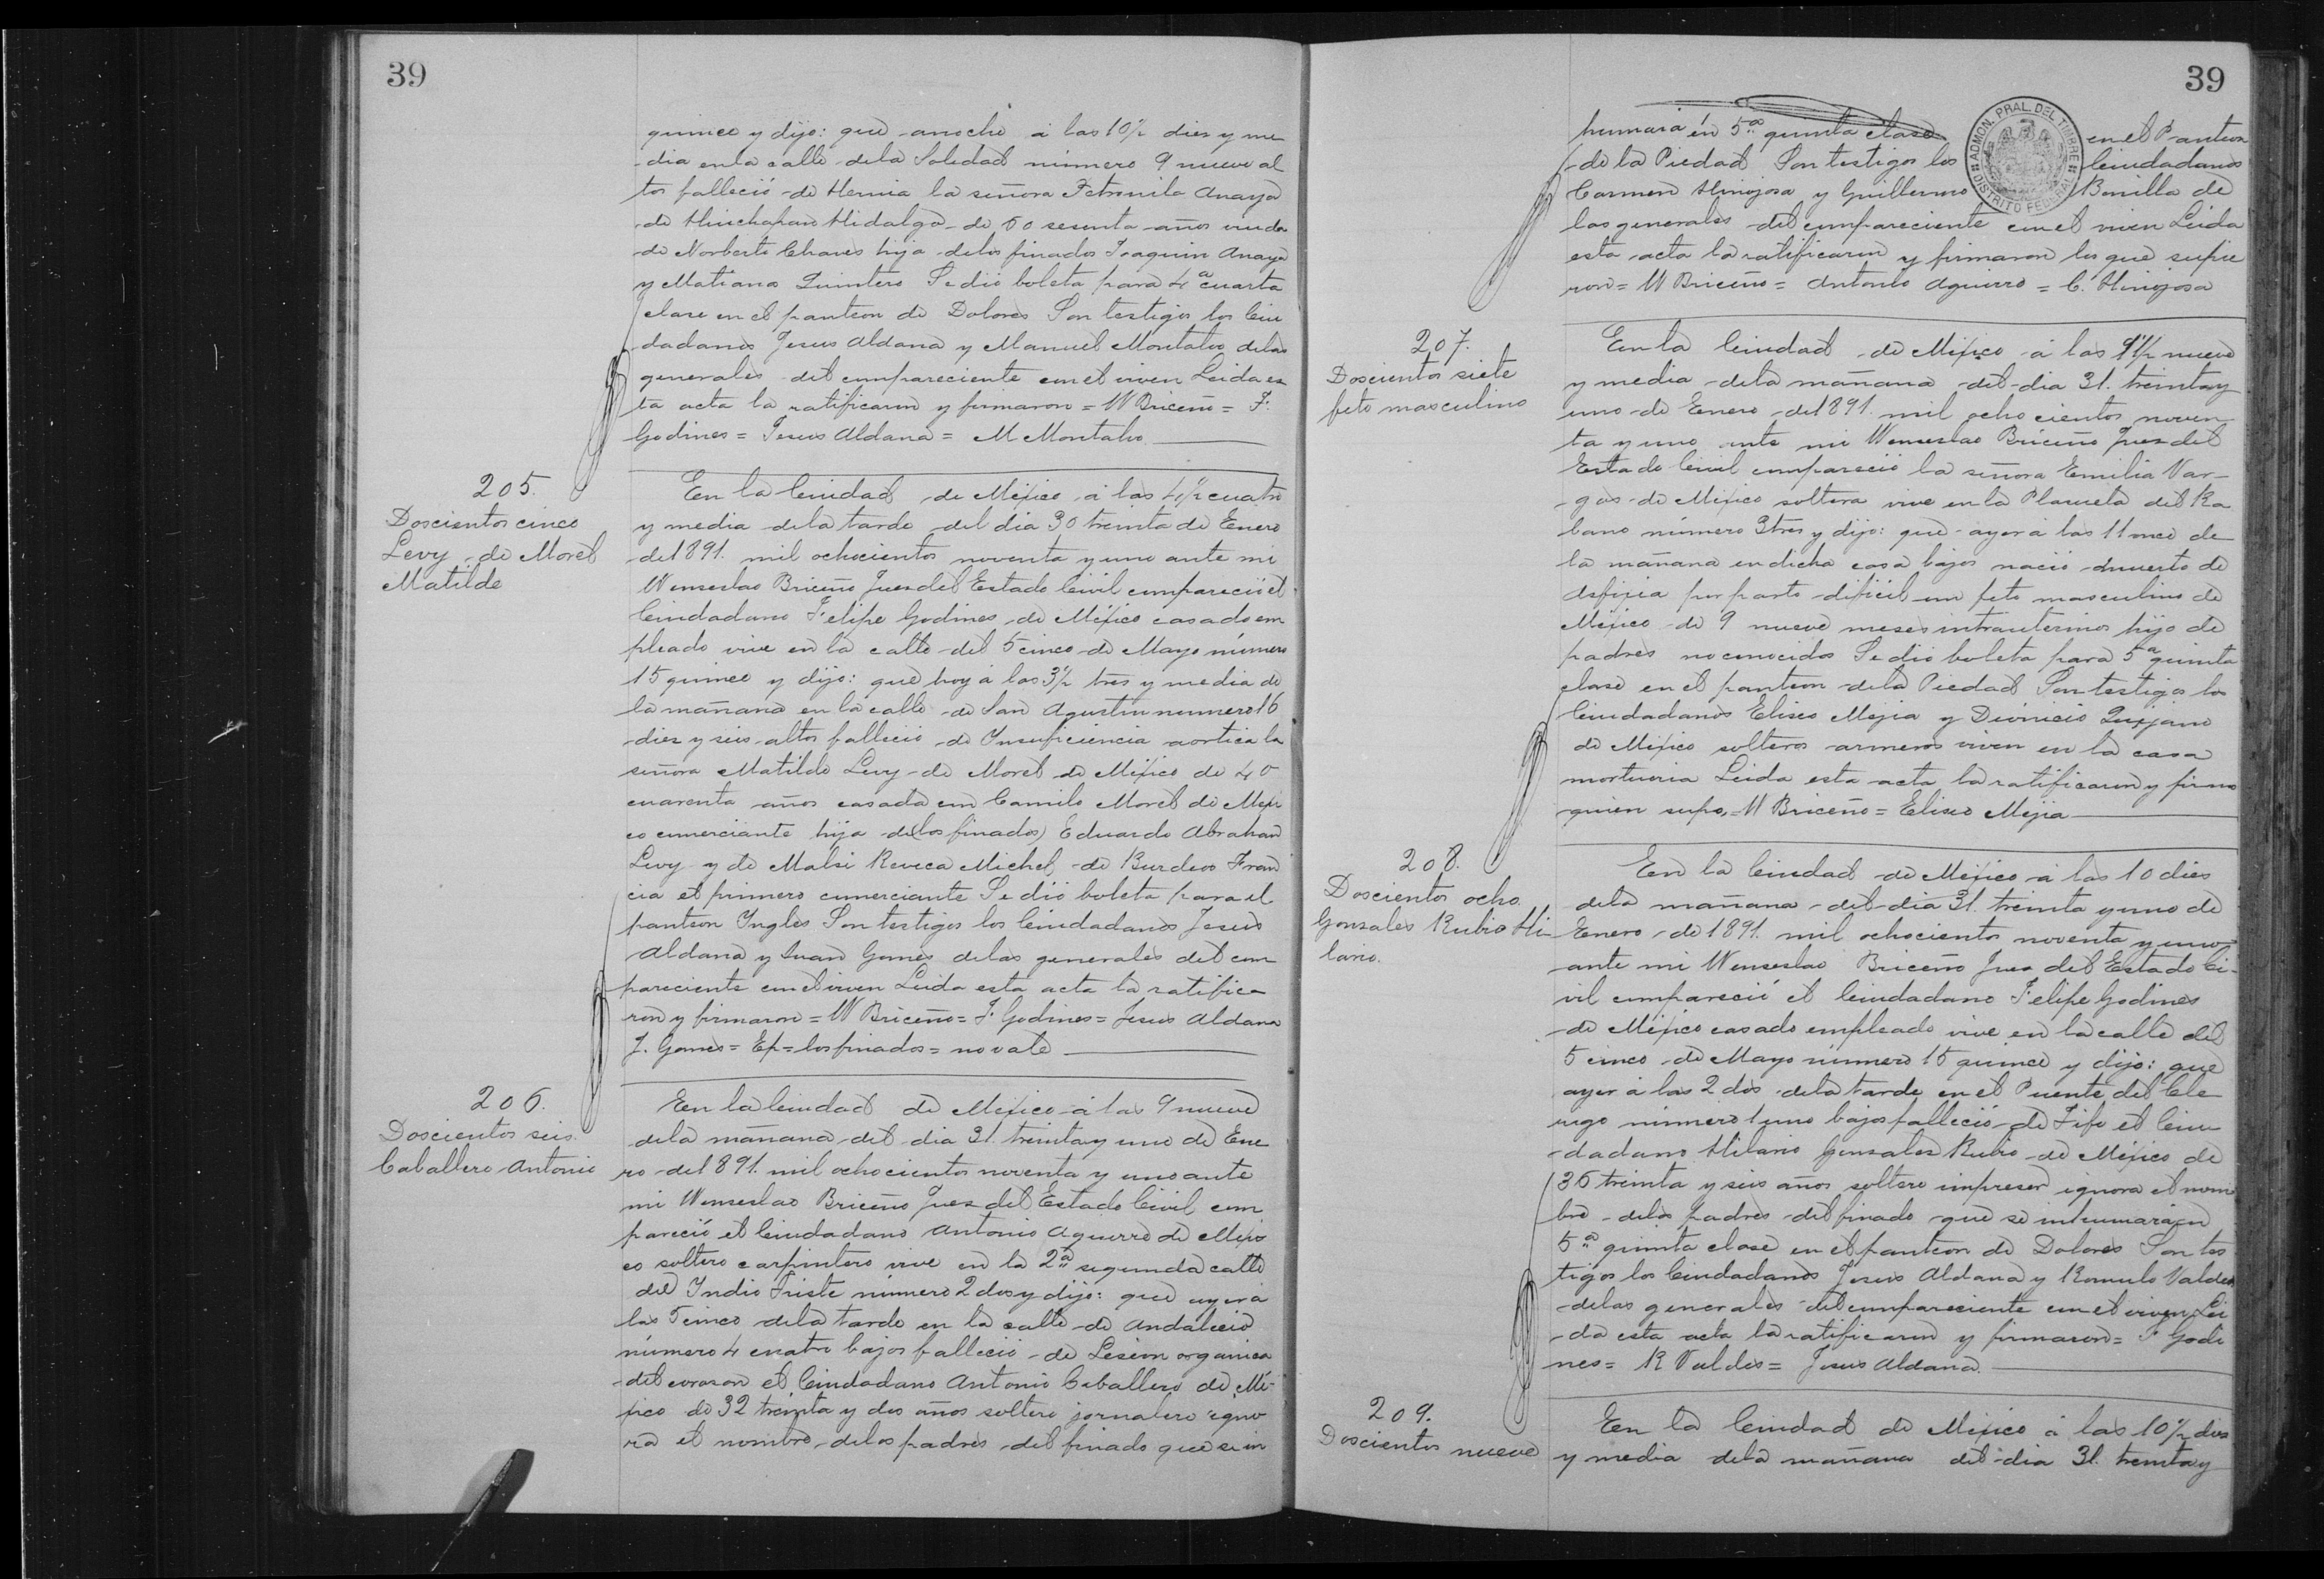 39
quince y dijo: que anoche á las 10½ diez y me
dia en la calle de la Soledad número 9 nueve al
tos falleció de Hernia la señora Petronila Anaya
de Huichapan Hidalgo de 60 sesenta años viuda
de Norberto Chaves hija de los finados Joaquin Anaya
y Matiana Quintero Se dió boleta para 4ª cuarta
clase en el panteon de Dolores Son testigos los Ciu
dadanos Jesus Aldana y Manuel Montalvo delas
generales del compareciente con el viven Leida es
ta acta la ratificaron y firmaron = W Briceño = F.
Godines = Jesus Aldana = M Montalvo.
205.
Doscientos cinco
Levy de Morel
Matilde
En la Ciudad de Mexico á las 4½ cuatro
y media dela tarde del dia 30 treinta de Enero
de 1891. mil ochocientos noventa y uno ante mi
Wenseslao Briceño Juez del Estado Civil compareció el
Ciudadano Felipe Godines de México casado em
pleado vive en la calle del 5 cinco de Mayo número
15 quince y dijo: que hoy á las 3½ tres y media de
la mañana en la calle de San Agustin número 16
diez y seis altos falleció de Insuficiencia aortica la
señora Matilde Levy de Morel de México de 40
cuarenta años casada con Camilo Morel de Mexi
co comerciante hija de (los finados) Eduardo Abraham
Levy y de Malsi Reveca Michel de Burdeos Fran
cia el primero comerciante Se dió boleta para el
panteon Ingles Son testigos los Ciudadanos Jesus
Aldana y Juan Gomes delas generales del com
pareciente con el viven Leida esta acta la ratifica
ron y firmaron = W Briceño = F. Godines = Jesus Aldana
J. Gomes = Ep = los finados = no vale
206.
Doscientos seis
Caballero Antonio
En la Ciudad de México á las 9 nueve
dela mañana del dia 31. treinta y uno de Ene
ro de 1891. mil ochocientos noventa y uno ante
mi Wenseslao Briceño Juez del Estado Civil com
pareció el Ciudadano Antonio Aguirre de Méxi
co soltero carpintero vive en la 2ª segunda calle
del Indio Triste número 2 dos y dijo: que ayer á
las 5 cinco dela tarde en la calle de Andalicio
número 4 cuatro bajos falleció de Lesion organica
del corazon el Ciudadano Antonio Caballero de Mé-
xico de 32 treinta y dos años soltero jornalero igno
ra el nombre delos padres del finado que se in
39
humará en 5ª quinta clase en el Panteon
de la Piedad Son testigos los Ciudadanos
Carmen Hinojosa y Guillermo Bonilla de
las generales del compareciente con el viven Leida
esta acta la ratificaron y firmaron los que supie
ron = W Briceño = Antonio Aguirre = C. Hinojosa
ADMON. PRAL. DEL TIMBRE
DISTRITO FEDERAL
207.
Doscientos siete
feto masculino
En la Ciudad de México á las 9½ nueve
y media dela mañana del dia 31. treinta y
uno de Enero de 1891. mil ocho cientos noven
ta y uno ante mi Wenseslao Briceño Juez del
Estado Civil compareció la señora Emilia Var-
gas de México soltera vive en la Plasuela del Ra
bano número 3 tres y dijo: que ayer á las 11 once de
la mañana en dicha casa bajos nació muerto de
Asfixia por parto dificil un feto masculino de
México de 9 nueve meses intrauterinos hijo de
padres no conocidos Se dió boleta para 5ª quinta
clase en el panteon dela Piedad Son testigos los
Ciudadanos Eliseo Mejia y Dionicio Quijano
de México solteros armeros viven en la casa
mortuoria Leida esta acta la ratificaron y firmo
quien supo = W Briceño = Eliseo Mejia
208.
Doscientos ocho
Gonzales Rubio Hi
lario.
En la Ciudad de México á las 10 dies
dela mañana del dia 31. treinta y uno de
Enero de 1891. mil ochocientos noventa y uno
ante mi Wenseslao Briceño Juez del Estado Ci-
vil compareció el Ciudadano Felipe Godines
de México casado empleado vive en la calle del
5 cinco de Mayo número 15 quince y dijo: que
ayer á las 2 dos dela tarde en el Puente del Cle
rigo número 1 uno bajos falleció de Tifo el Ciu
dadano Hilario Gonzales Rubio de México de
36 treinta y seis años soltero impresor ignora el nom
bre delos padres del finado que se inhumará en
5ª quinta clase en el panteon de Dolores Son tes
tigos los Ciudadanos Jesus Aldana y Romulo Valdes
delas generales del compareciente con el viven Lei
da esta acta la ratificaron y firmaron = F Godi
nes = R Valdes = Jesus Aldana.
209.
Doscientos nueve
En la Ciudad de México á las 10½ dies
y media dela mañana del dia 31. treinta y